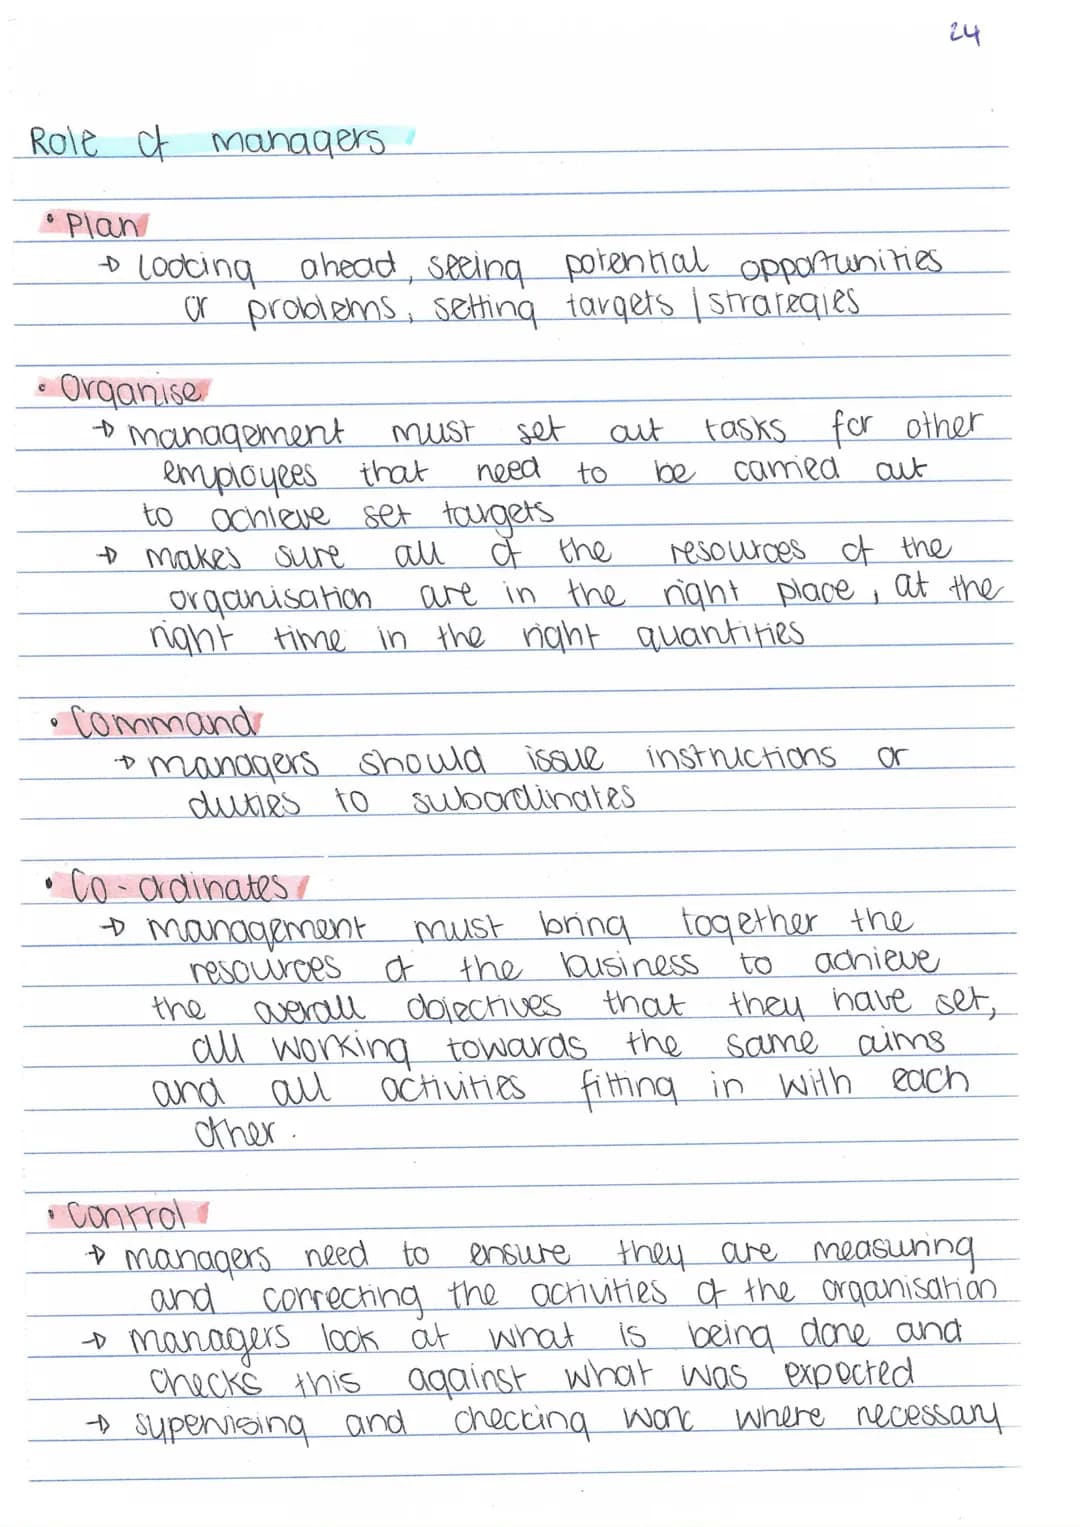 24
Role of managers
• Plan
→ Looking ahead, seeing potential opportunities
or problems, setting targets / strategies
• Organise
→ management must set out tasks for other
employees that need to be carried out
to achieve set targets
→ makes sure all of the resources of the
organisation are in the right place, at the
right time in the right quantities
• Command
→ managers should issue instructions or
duties to subordinates
• Co-ordinates
→ management must bring together the
resources of the business to achieve
the overall objectives that they have set,
all working towards the same aims
and all activities fitting in with each
other.
• Control
→ managers need to ensure they are measuring
and correcting the activities of the organisation
→ managers look at what is being done and
checks this against what was expected
→ supervising and checking work where necessary